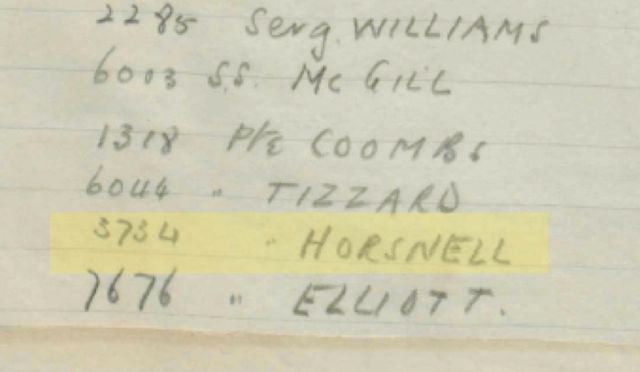 2285 Serg. WILLIAMS
6003 S.S. McGILL
1318 P/E COOMBS
6044 " TIZZARD
3734 " HORSNELL
7676 " ELLIOTT.